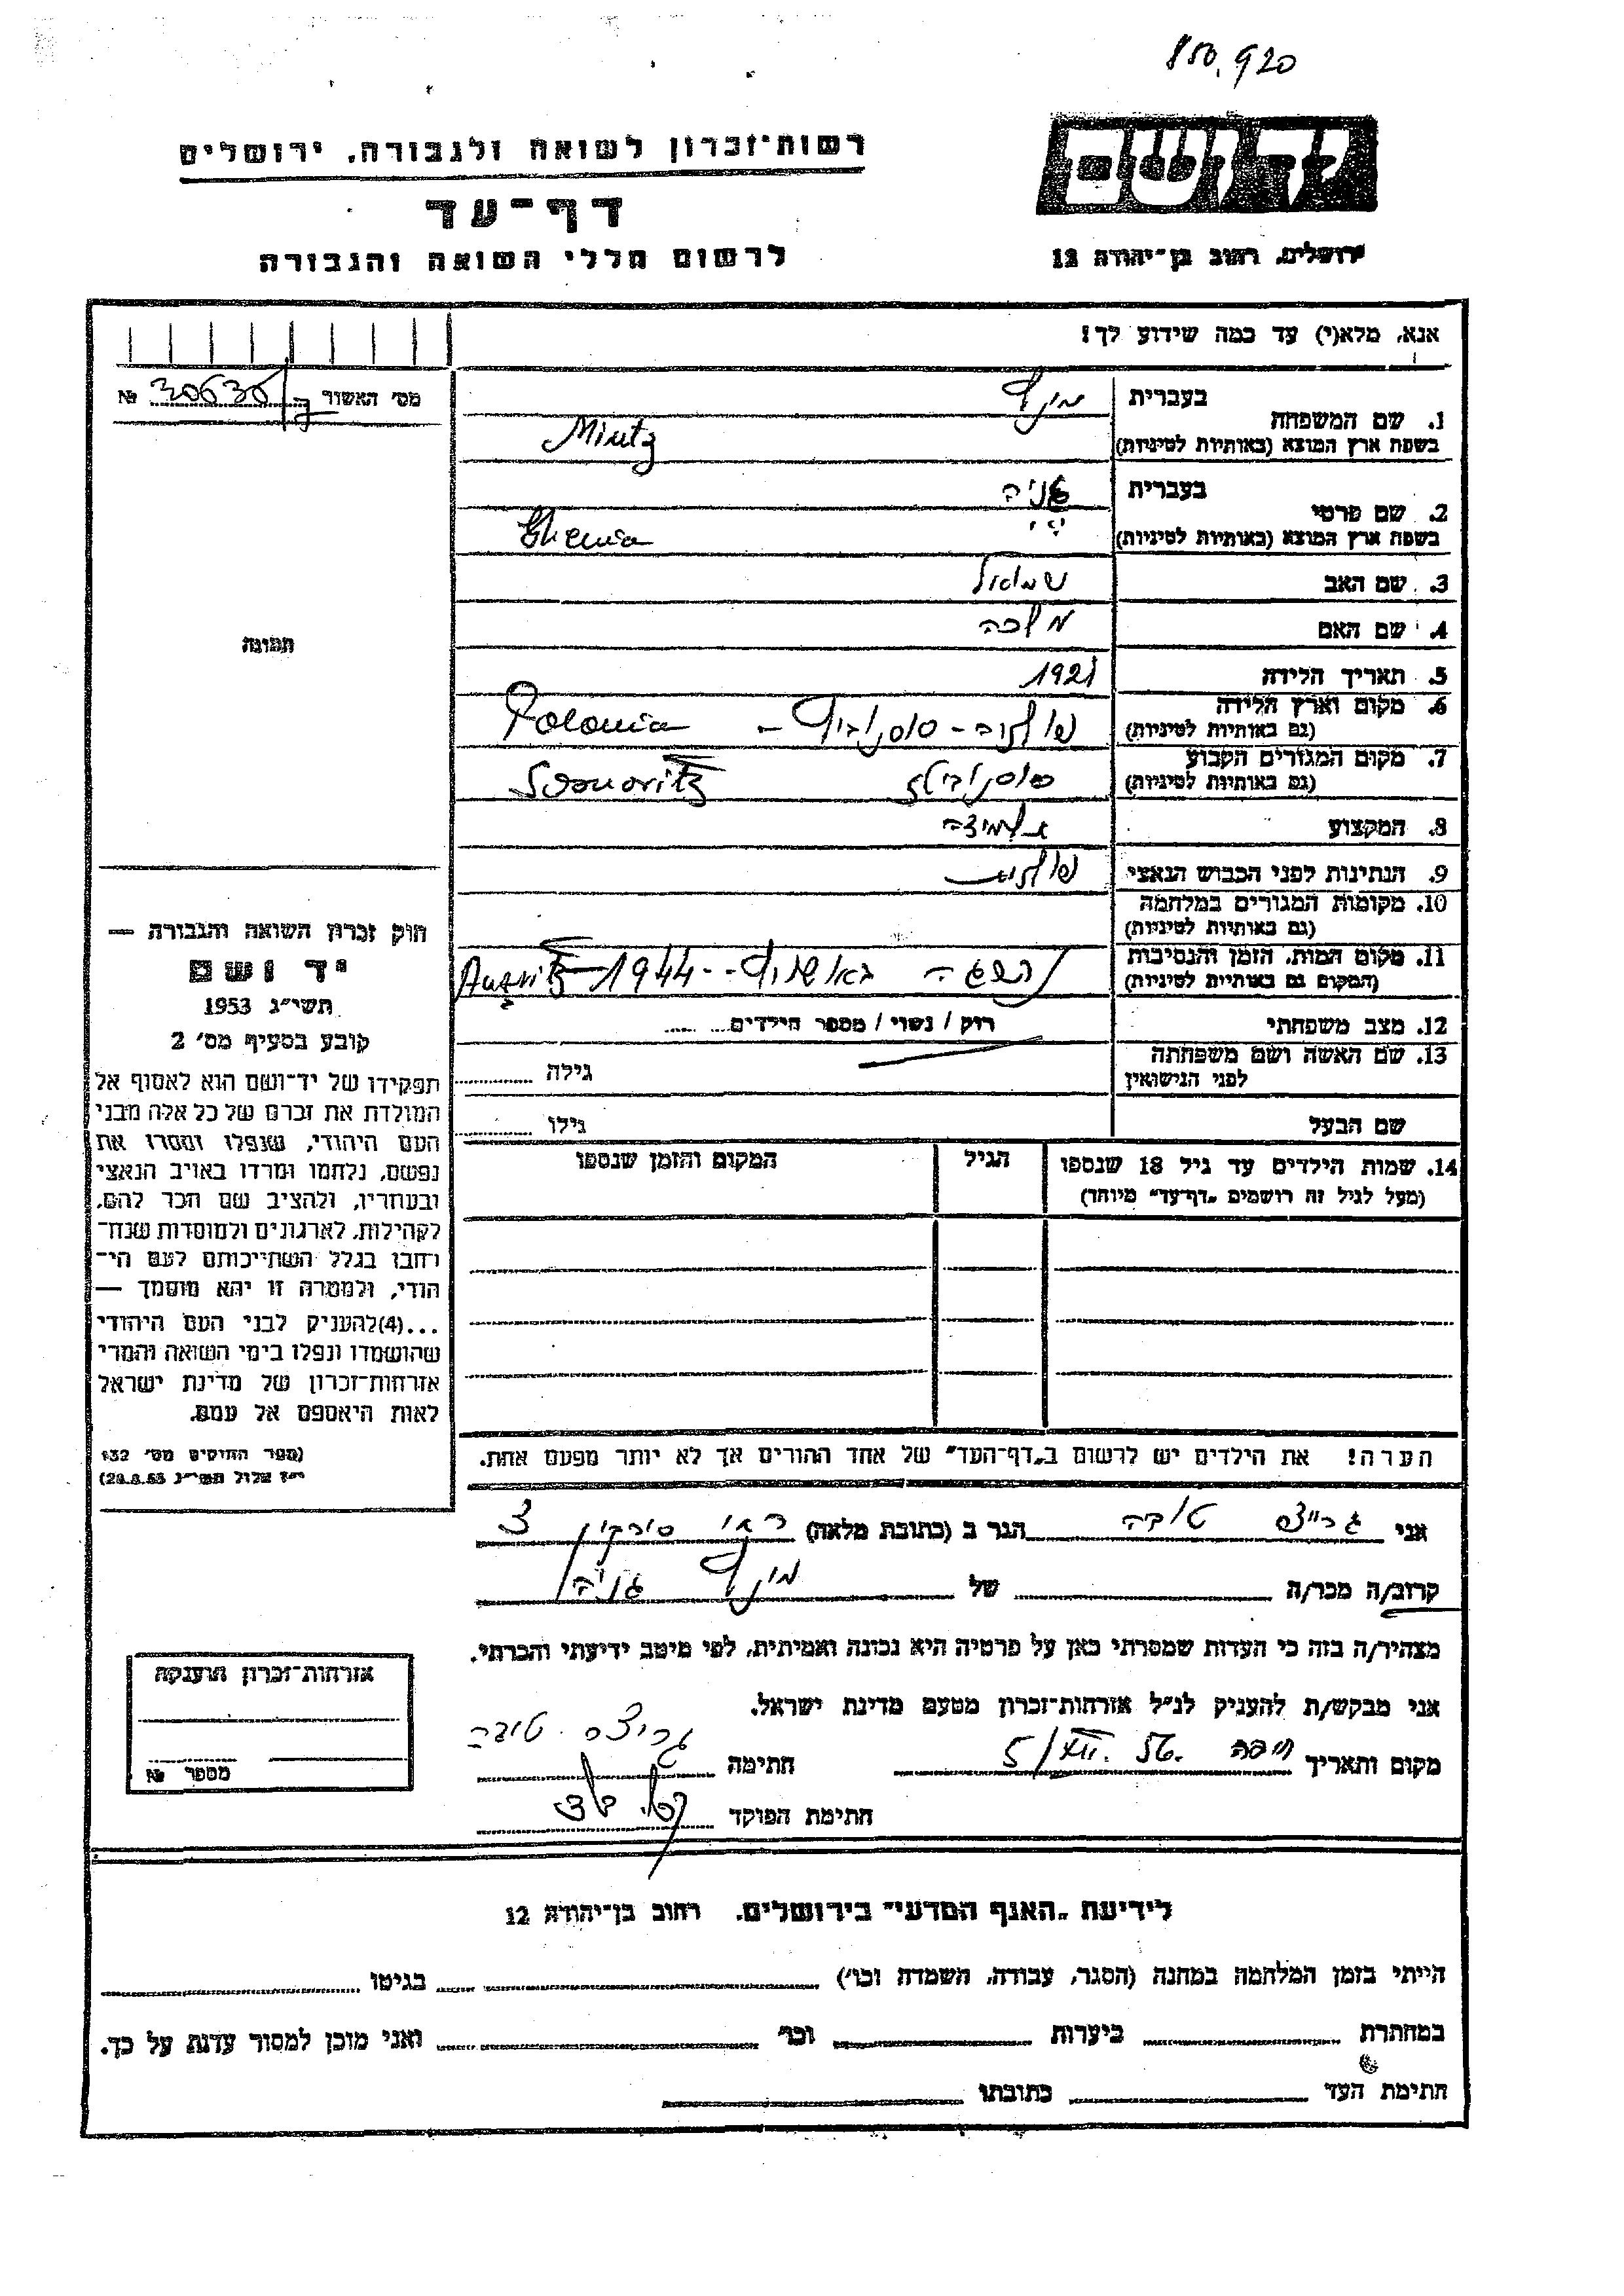 850,920
יד ושם
רשות־זכרון לשואה ולגבורה, ירושלים
דף־עד
לרשום חללי השואה והגבורה
ירושלים, רחוב בן־יהודה 12
אנא, מלא(י) עד כמה שידוע לך!
מס' האשור № 30635
בעברית מינץ
1. שם המשפחה
בשפת ארץ המוצא (באותיות לטיניות) Mintz
בעברית גניה
2. שם פרטי
בשפת ארץ המוצא (באותיות לטיניות) Ghenia
3. שם האב שמואל
4. שם האם מלכה
5. תאריך הלידה 1921
6. מקום וארץ הלידה
(גם באותיות לטיניות) פולניה - סוסנוביץ - Polonia
7. מקום המגורים הקבוע
(גם באותיות לטיניות) סוסנוביץ Sosnovitz
8. המקצוע תלמידה
9. הנתינות לפני הכבוש הנאצי פולנית
10. מקומות המגורים במלחמה
(גם באותיות לטיניות)
11. מקום המות, הזמן והנסיבות
(המקום גם באותיות לטיניות) באושויץ - 1944
12. מצב משפחתי רווק / נשוי / מספר הילדים
13. שם האשה ושם משפחתה
לפני הנישואין
גילה
שם הבעל גילו
14. שמות הילדים עד גיל 18 שנספו הגיל המקום והזמן שנספו
(מעל לגיל זה רושמים "דף־עד" מיוחד)
הערה! את הילדים יש לרשום ב"דף־העד" של אחד ההורים אך לא יותר מפעם אחת.
תמונה
חוק זכרון השואה והגבורה —
יד ושם
תשי"ג 1953
קובע בסעיף מס' 2
תפקידו של יד־ושם הוא לאסוף אל
המולדת את זכרם של כל אלה מבני
העם היהודי, שנפלו ומסרו את
נפשם, נלחמו ומרדו באויב הנאצי
ובעוזריו, ולהציב שם וזכר להם,
לקהילות, לארגונים ולמוסדות שנח־
רבו בגלל השתייכותם לעם הי־
הודי, ולמטרה זו יהא מוסמך —
...(4)להעניק לבני העם היהודי
שהושמדו ונפלו בימי השואה והמרי
אזרחות־זכרון של מדינת ישראל
לאות היאספם אל עמם.
(ספר החוקים מס' 132
י"ז אלול תשי"ג 28.8.53)
אני גרייצס טובה הגר ב (כתובת מלאה) סירקין
קרוב/ה מכר/ה של מינץ גניה
מצהיר/ה בזה כי העדות שמסרתי כאן על פרטיה היא נכונה ואמיתית, לפי מיטב ידיעתי והכרתי.
אני מבקש/ת להעניק לנ"ל אזרחות־זכרון מטעם מדינת ישראל.
מקום ותאריך חיפה 5/XII. 56. חתימה טובה
חתימת הפוקד
אזרחות־זכרון הוענקה
מספר №
לידיעת "האגף המדעי" בירושלים, רחוב בן־יהודה 12
הייתי בזמן המלחמה במחנה (הסגר, עבודה, השמדה וכו') בגיטו
במחתרת ביערות וכו' ואני מוכן למסור עדות על כך.
חתימת העד כתובתו